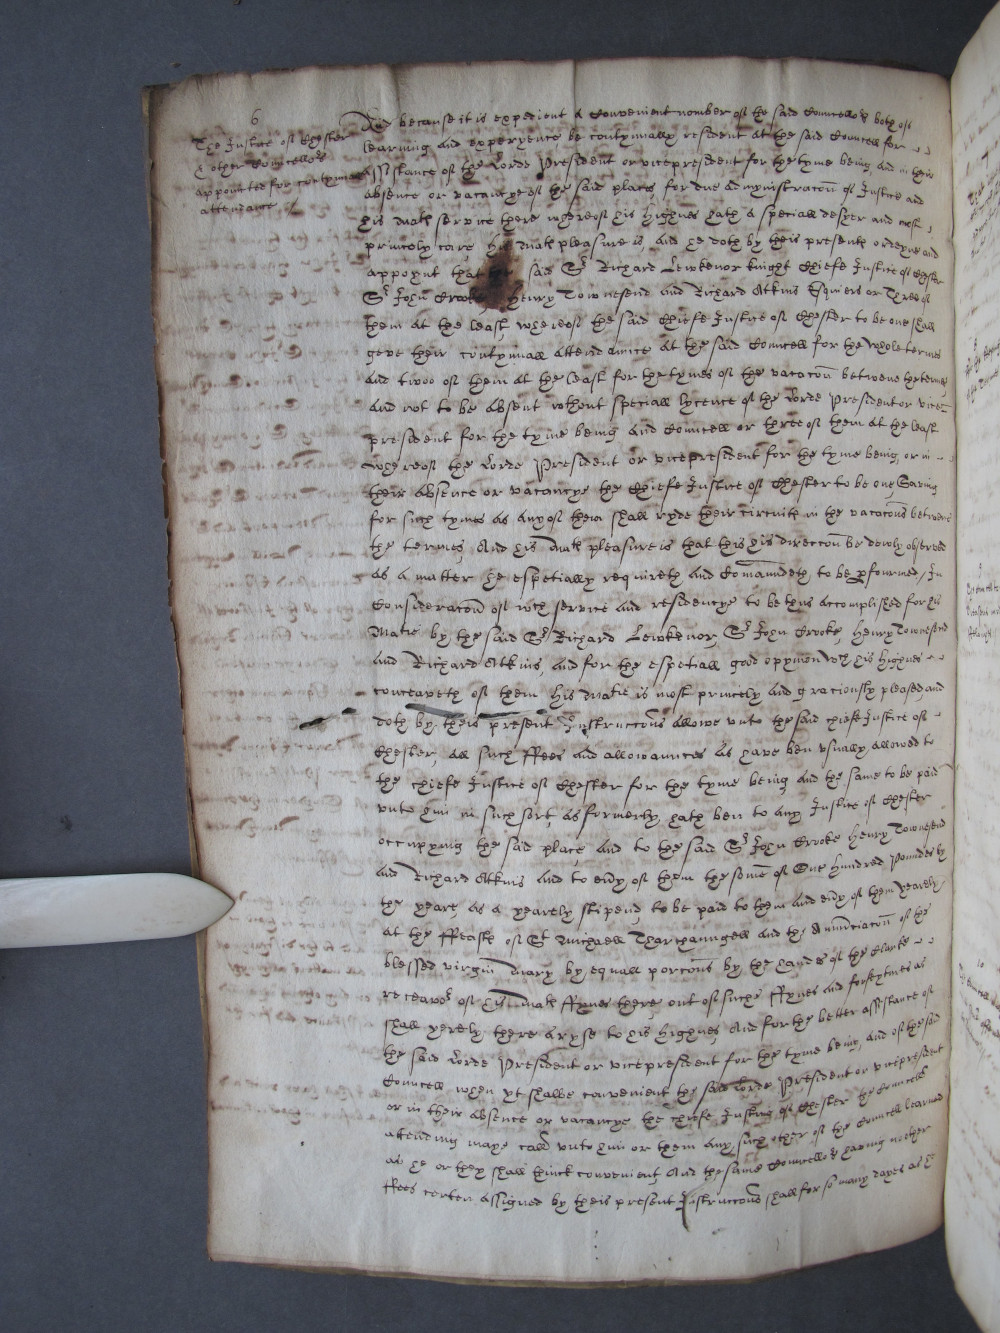 6
The Justice of Chester
& other Councellors
appointed for contynuall
attendance
And because it is expedient a convenient number of the said Councellors both of
learning and experyence be contynually resident at the said Councell for
Assistance of the Lorde President or vicepresident for the tyme being and in their
absence or vacancye of the said places for due admynistracon of Justice and
his Maties service there whereof his highnes hath a speciall desyer and most
princely care his Maties pleasure is and he doth by theis presents ordeyne and
appoynt that said Sr Richard Lewkenor knight Chiefe Justice of Chester
Sr John Crooke Henry Townesend and Richard Atkins Esquiers or Three of
them at the least, whereof the said Chiefe Justice of Chester to be one shall
geve their contynuall attendaunce at the said Councell for the whole termes
And twoo of them at the least for the tymes of the vacacon betwene the termes
And not to be absent without speciall lycence of the Lorde President or vice
president for the tyme being and Councell or three of them at the least
whereof the Lorde President or vicepresident for the tyme being, or in
their absence or vacancye the Chiefe Justice of Chester to be one, Saving
for such tymes as any of them shall ryde their circuits in the vacacons betwene
the termes, And his Maties pleasure is that this his direccon be dewly observed
as a matter he espetially requireth and Comaundeth to be pfourmed, In
Consideracon of wch service and residencye to be thus accomplished for his
Matie by the said Sr Richard Lewkenor, Sr John Crooke, Henry Townesend
and Richard Atkins, and for the espetiall good opynion wch his highnes
conceaveth of them his Matie is most princely and graciously pleased, and
doth by theis present Instruccons allowe unto the said chiefe Justice of
Chester, all such ffees and allowaunces as have ben usually allowed to
the chiefe Justice of Chester for the tyme being and the same to be paid
unto him in such sort, as formerly hath ben to any Justice of Chester
occupying the said place, and to the said Sr John Crooke Henry Townesend
and Richard Atkins and to evry of them the some of One hundred Poundes by
the yeare, as a yearely stipend, to be paid to them and evry of them yearely
at the ffeasts of St Michaell Tharchaungell and the Annunciacon of the
blessed virgin Mary by equall porcons by the handes of the Clarke
receavor of his Maties ffynes there, out of suche ffynes and forfeytures as
shall yerely there aryse to his highnes And for the better assistance of
the said Lorde President or vicepresident for the tyme being, and of the said
Councell when yt shalbe convenient the said Lorde President or vicepresident
or in their absence or vacancye the chiefe Justice of Chester the Councell
attending maye call unto him or them any such other of the Councell learned
as he or they shall thinck convenient, And the same Councellors having no other
ffees certen assigned by theis present Instruccons shall for so many dayes as he